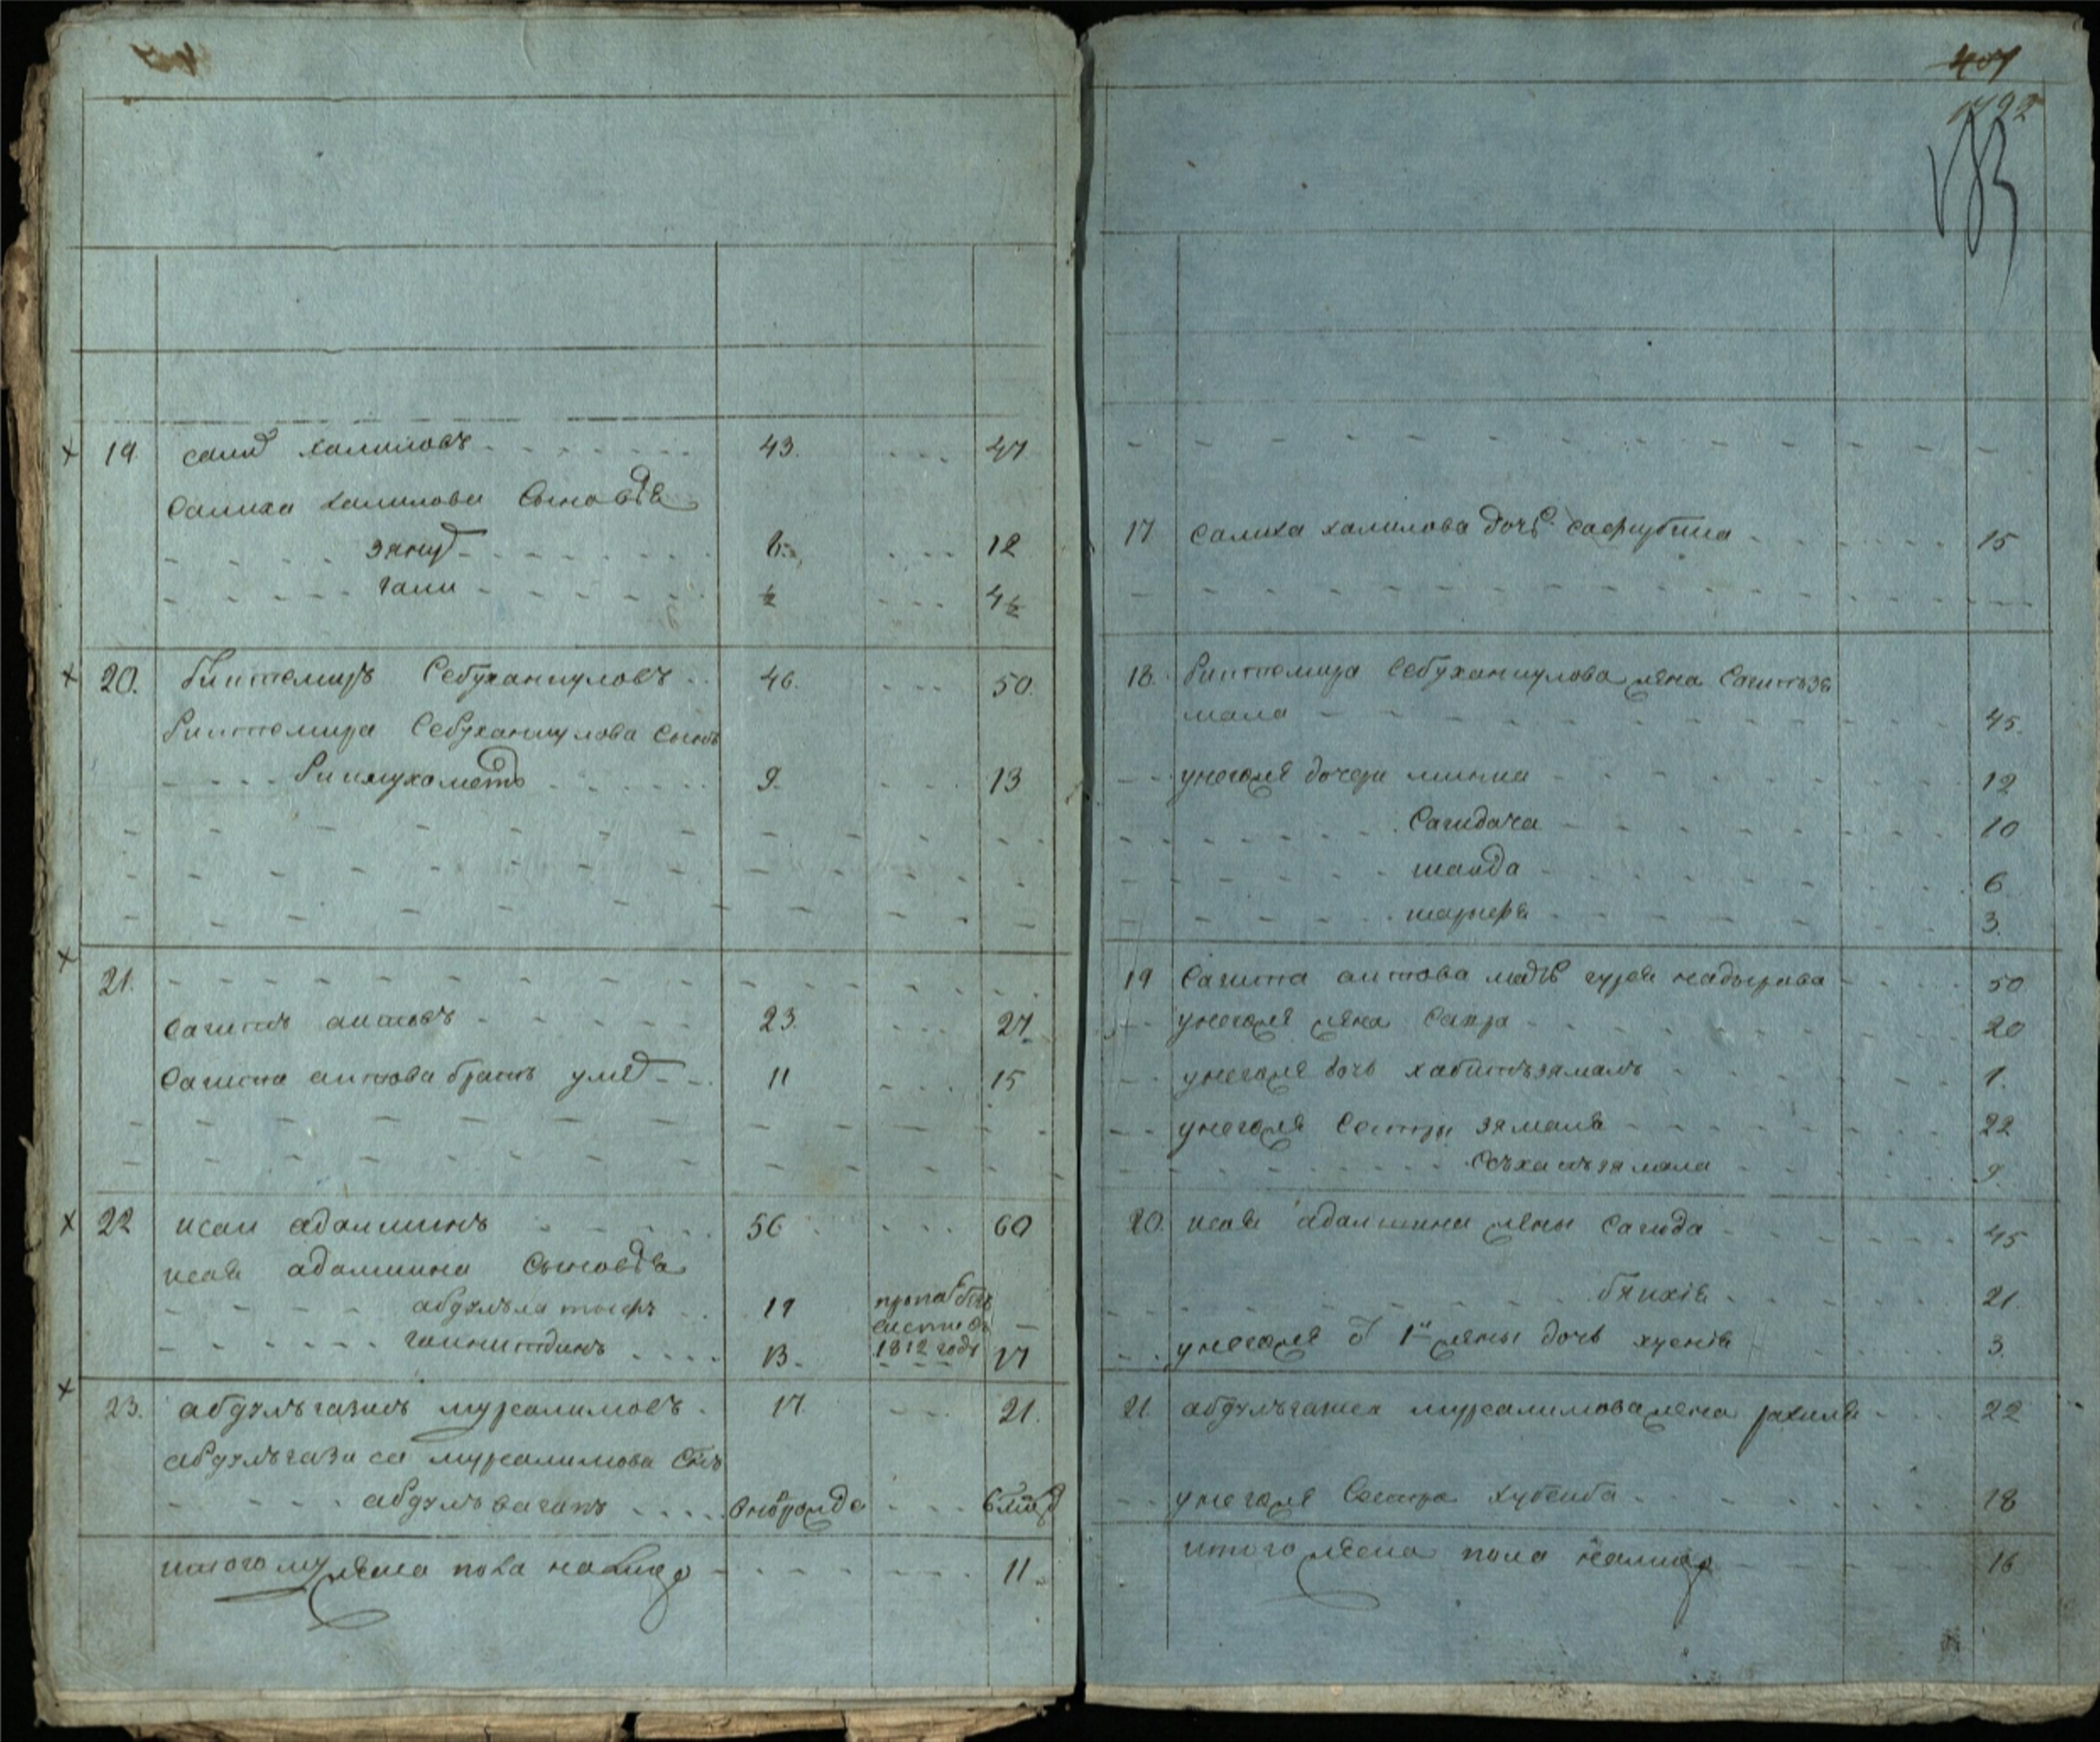 19. саид халиловъ 43. 47
Салиха халилова Сыновья
зянуд 8. 12
гали ½ 4½
20. Биктемиръ Себуханкуловъ 46. 50.
Биктемира Себуханкулова Сынъ
Бикмухаметъ 9. 13
21.
Сагитъ аитовъ 23. 27.
Сагита аитова братъ умед 11 15
22 исай адамшинъ 56 60
исая адамшина Сыновья
абдулълатыфъ 19 пропалъ безъ вести въ 1812 годе
гайнитдинъ 13. 17
23. абдулъгазисъ мурсалимовъ 17 21.
абдулъгазиса мурсалимова Сынъ
абдулъвагапъ
итого мужеска пола налицо 11.
401
1792
183
17 Салиха халилова дочь Сафкубика 15
18. Биктемира Себуханкулова жена Сагитьзя
мала 45.
у него же дочери минка 12
Сагидача 10
шаида 6
шарифа 3.
19 Сагита аитова мать надырова 50
у него же жена Сахра 20
у него же дочь хабитъзямалъ 1.
у него же Сестры зямаля 22
9.
20. исая адамшина жены Сагида 45
бякия 21.
у него же от 1й жены дочь хусния 3.
21. абдулъгазиса мурсалимова жена рахиля 22
у него же Сестра хубейба 18
итого женска пола налицо 16